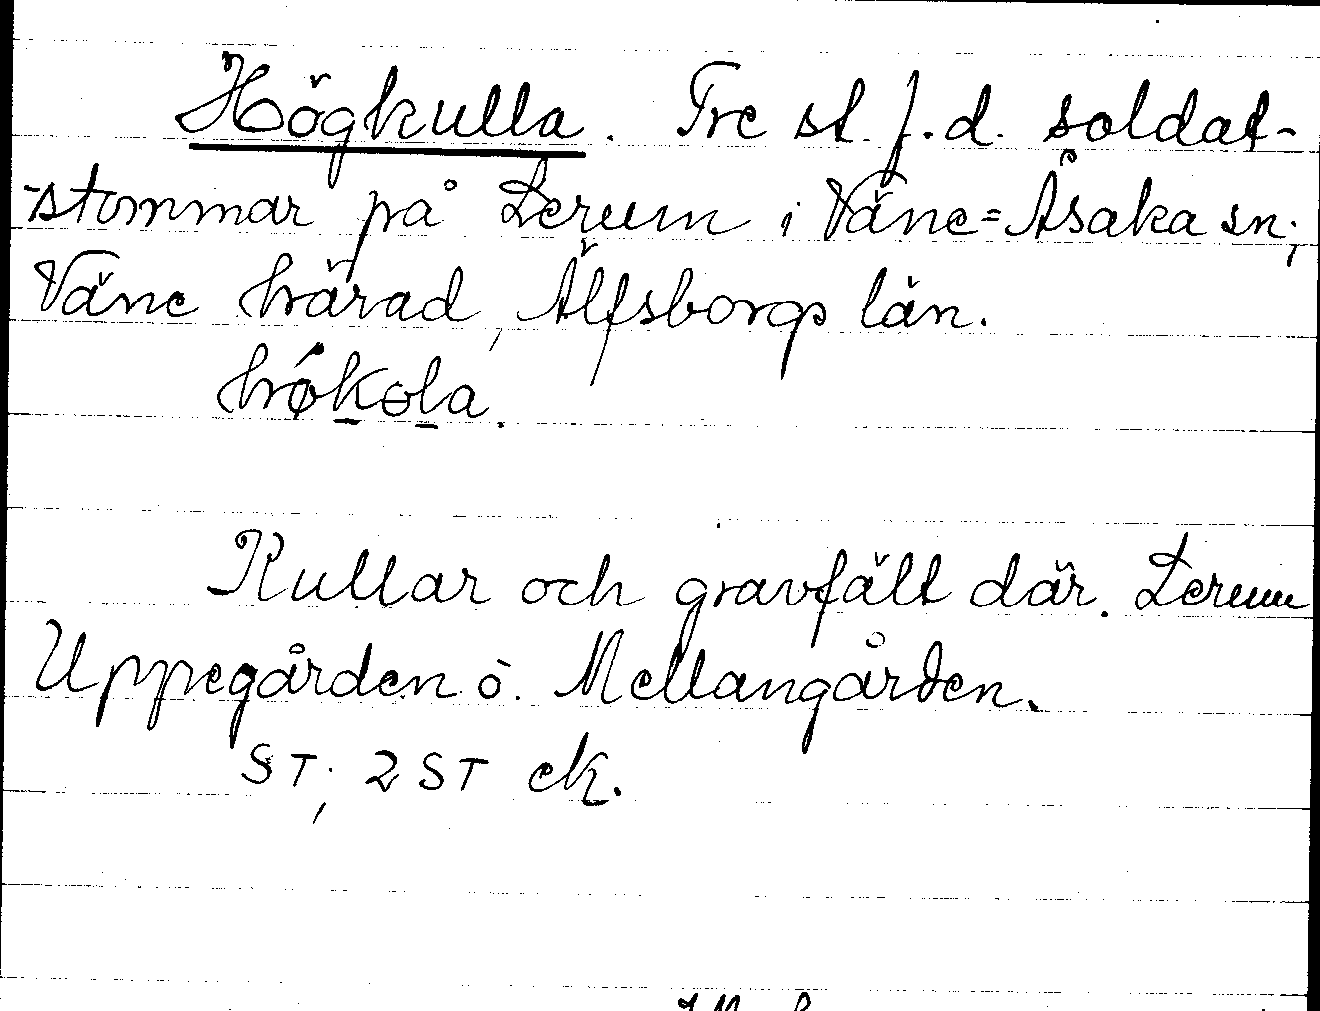 Högkulla. Tre st. f.d. soldat-
-stommar på Lerum i Väne=Åsaka sn;
Väne härad, Älfsborgs län.
hǿkɵla.
Kullar och gravfält där. Lerum
Uppegården o. Mellangården.
ST; 2 ST ek.